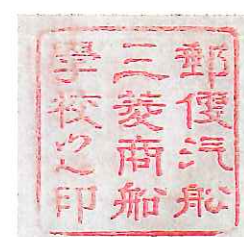 郵便汽船
三菱商船
學校之印